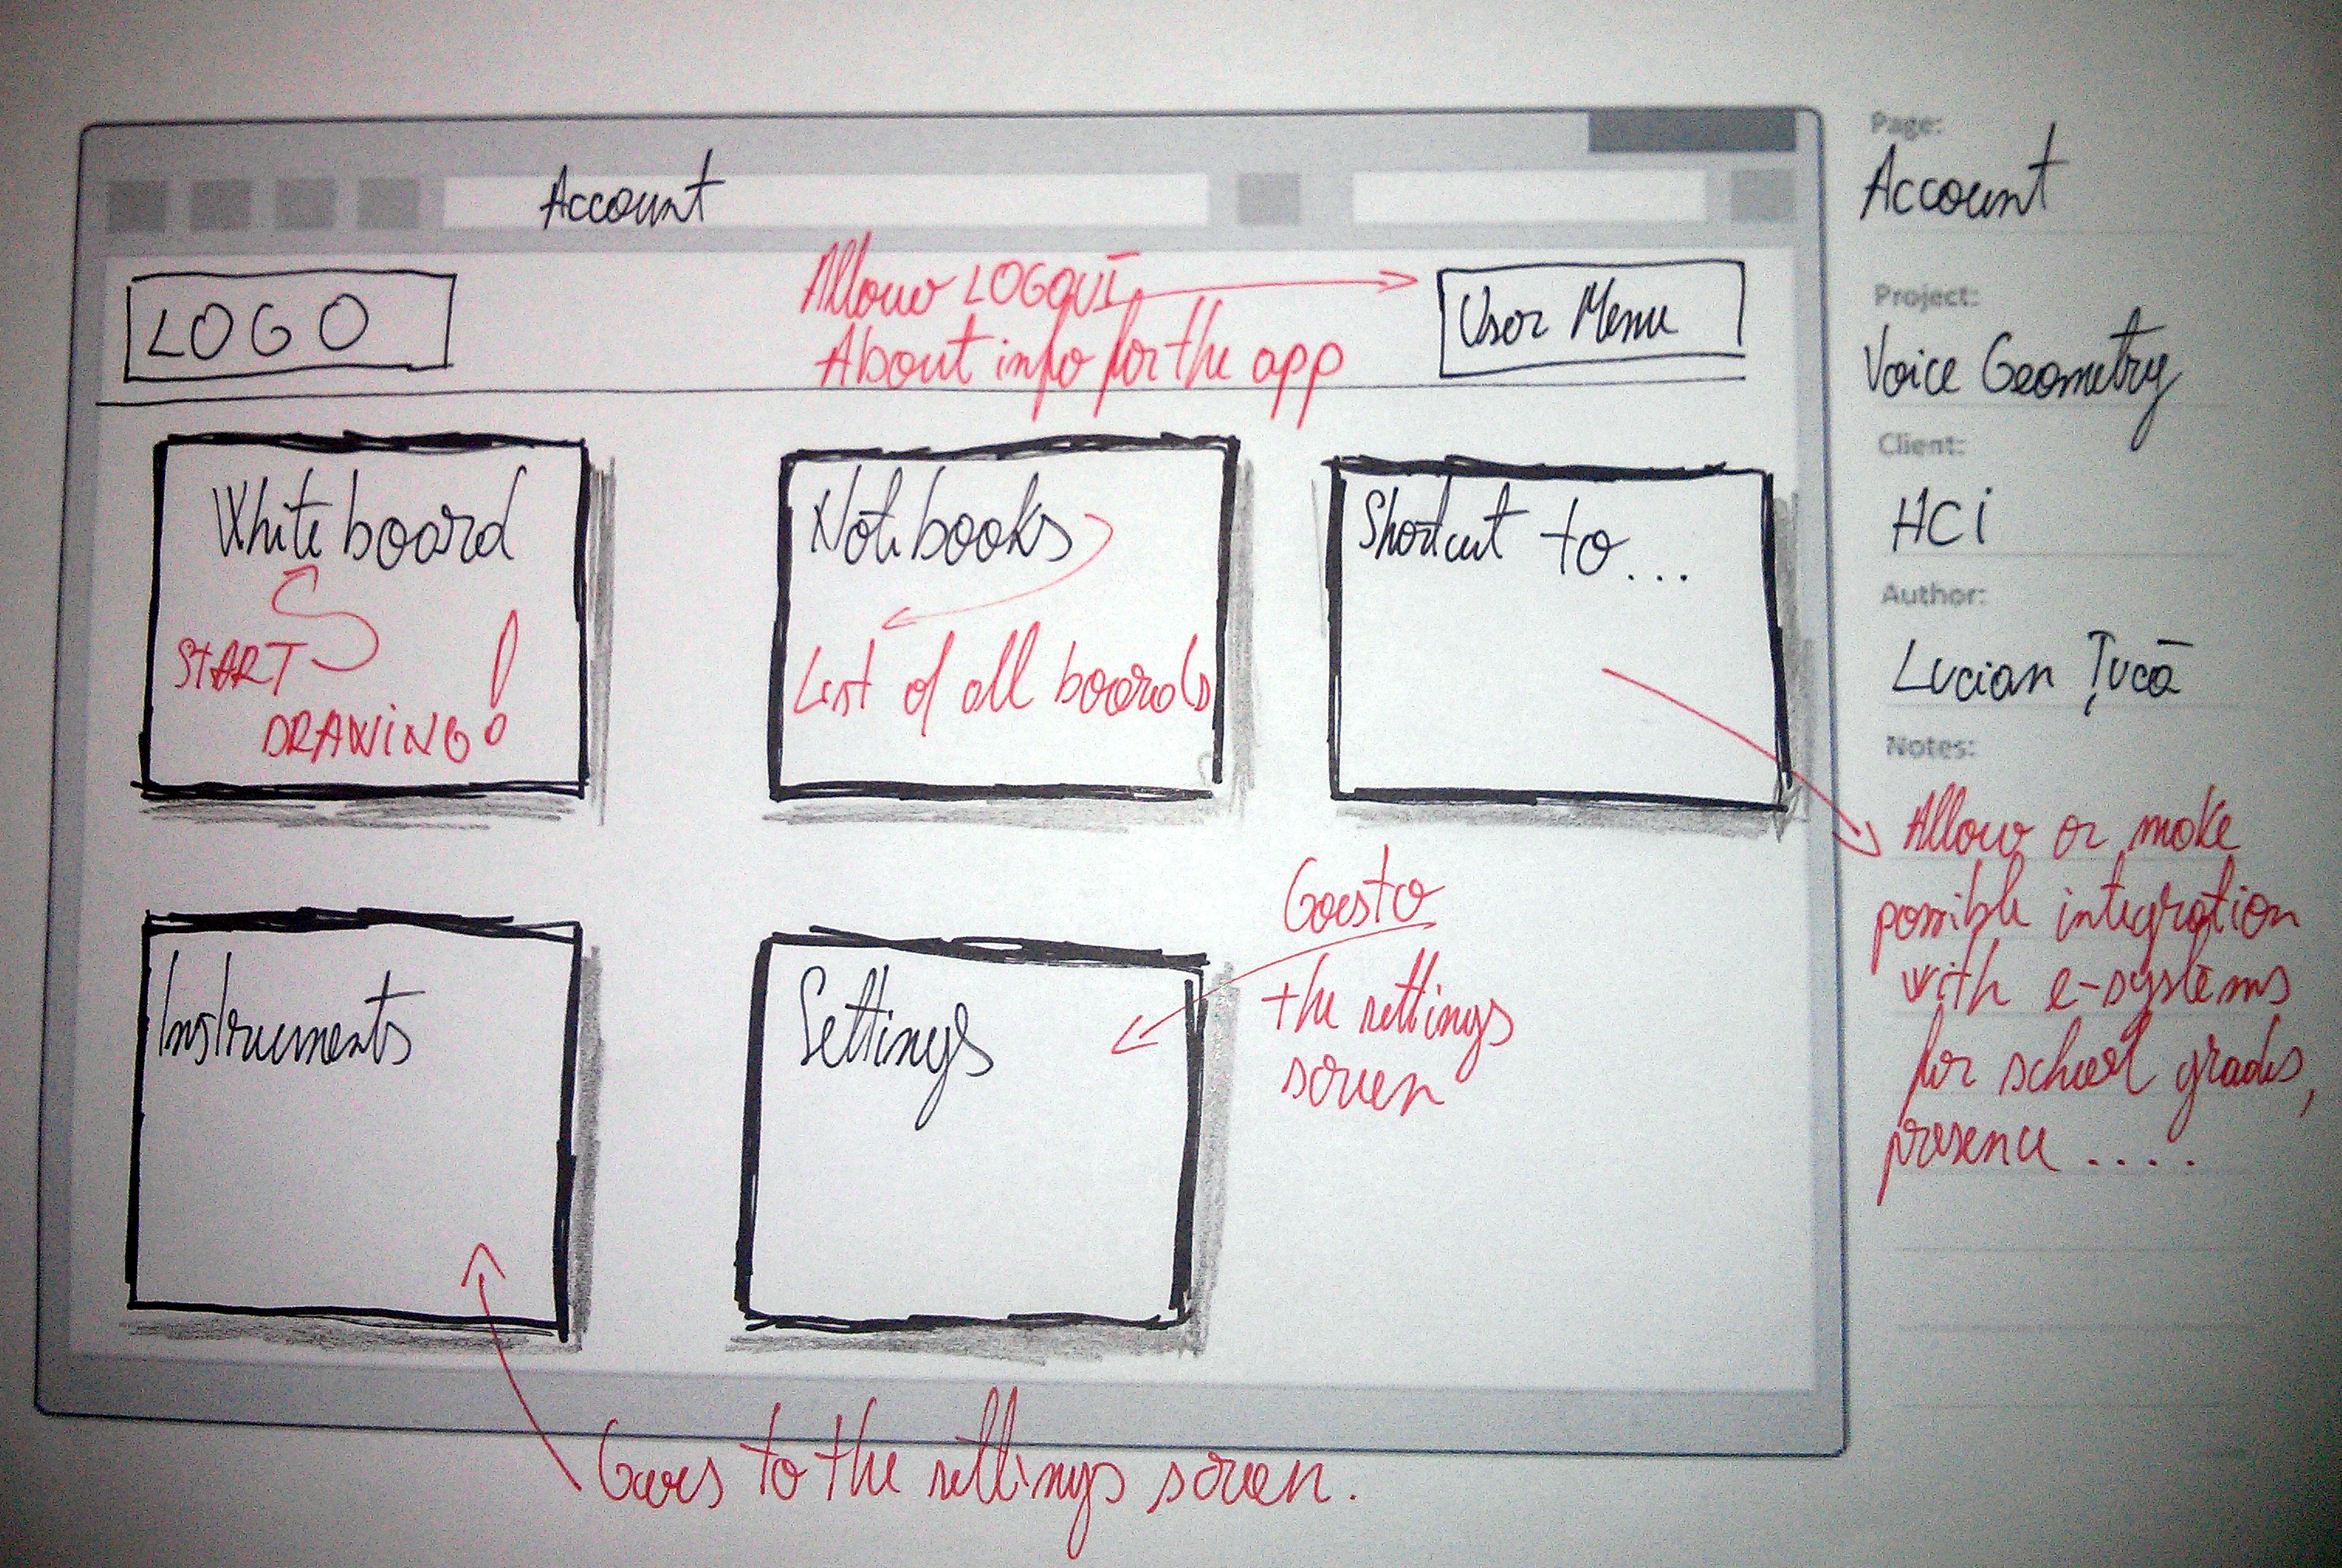 Account
LOGO
Allow LOGOUT
About info for the app
User Menu
Whiteboard
START
DRAWING!
Notebooks
List of all boards
Shortcut to...
Instruments
Settings
Goes to
the settings
screen
Goes to the settings screen.
Page:
Account
Project:
Voice Geometry
Client:
HCI
Author:
Lucian Țucă
Notes:
Allow or make
possible integration
with e-systems
for school grades,
presence ....